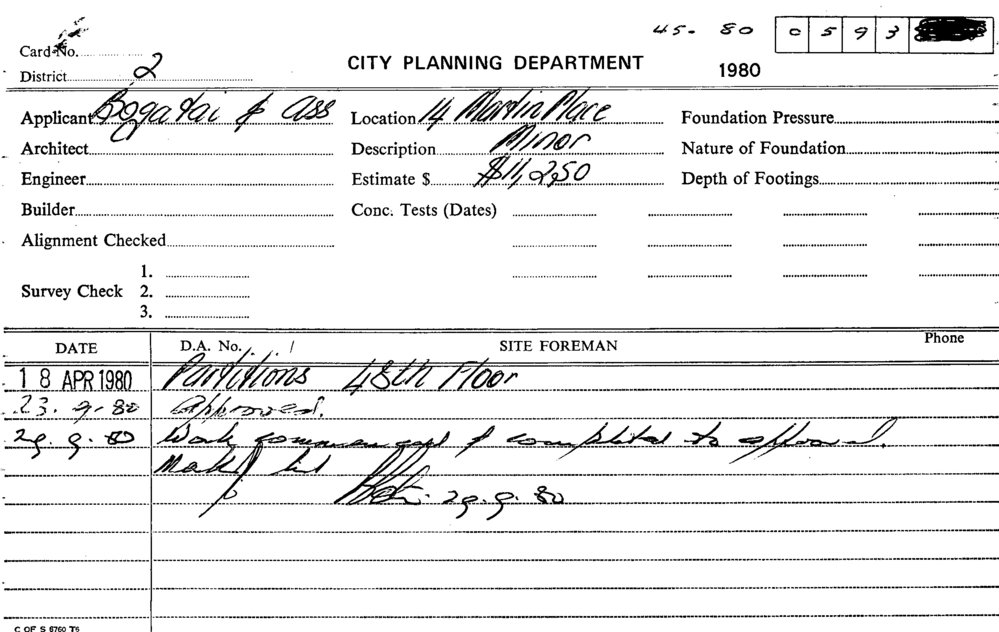 45. 80 0 5 9 3
Card No.
District 2
CITY PLANNING DEPARTMENT
1980
Applicant & Ass
Location 14 Martin Place
Foundation Pressure
Architect
Description Minor
Nature of Foundation
Engineer
Estimate $ $11,250
Depth of Footings
Builder
Conc. Tests (Dates)
Alignment Checked
Survey Check
1.
2.
3.
DATE
D.A. No. / /
SITE FOREMAN
Phone
18 APR 1980 Partitions 48th Floor
23. 9. 80 Approved.
29. 9. 80 Work commenced & completed to approval.
29. 9. 80
C OF S 6760 T6